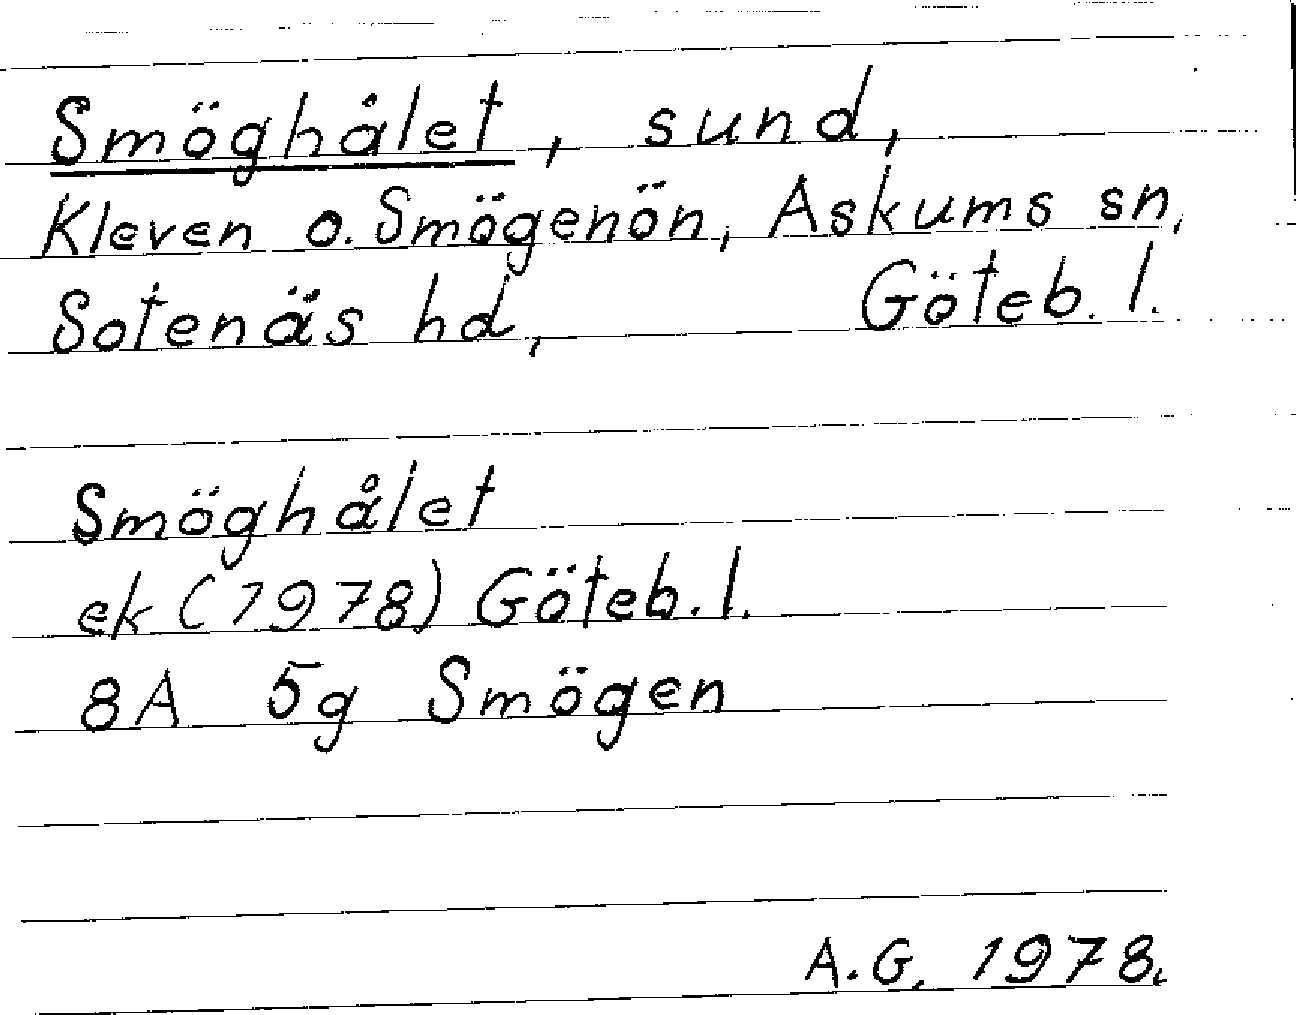 Smöghålet, sund,
Kleven o. Smögenön, Askums sn,
Sotenäs hd, Göteb. l.
Smöghålet
ek (1978) Göteb. l.
8A 5g Smögen
A.G. 1978.